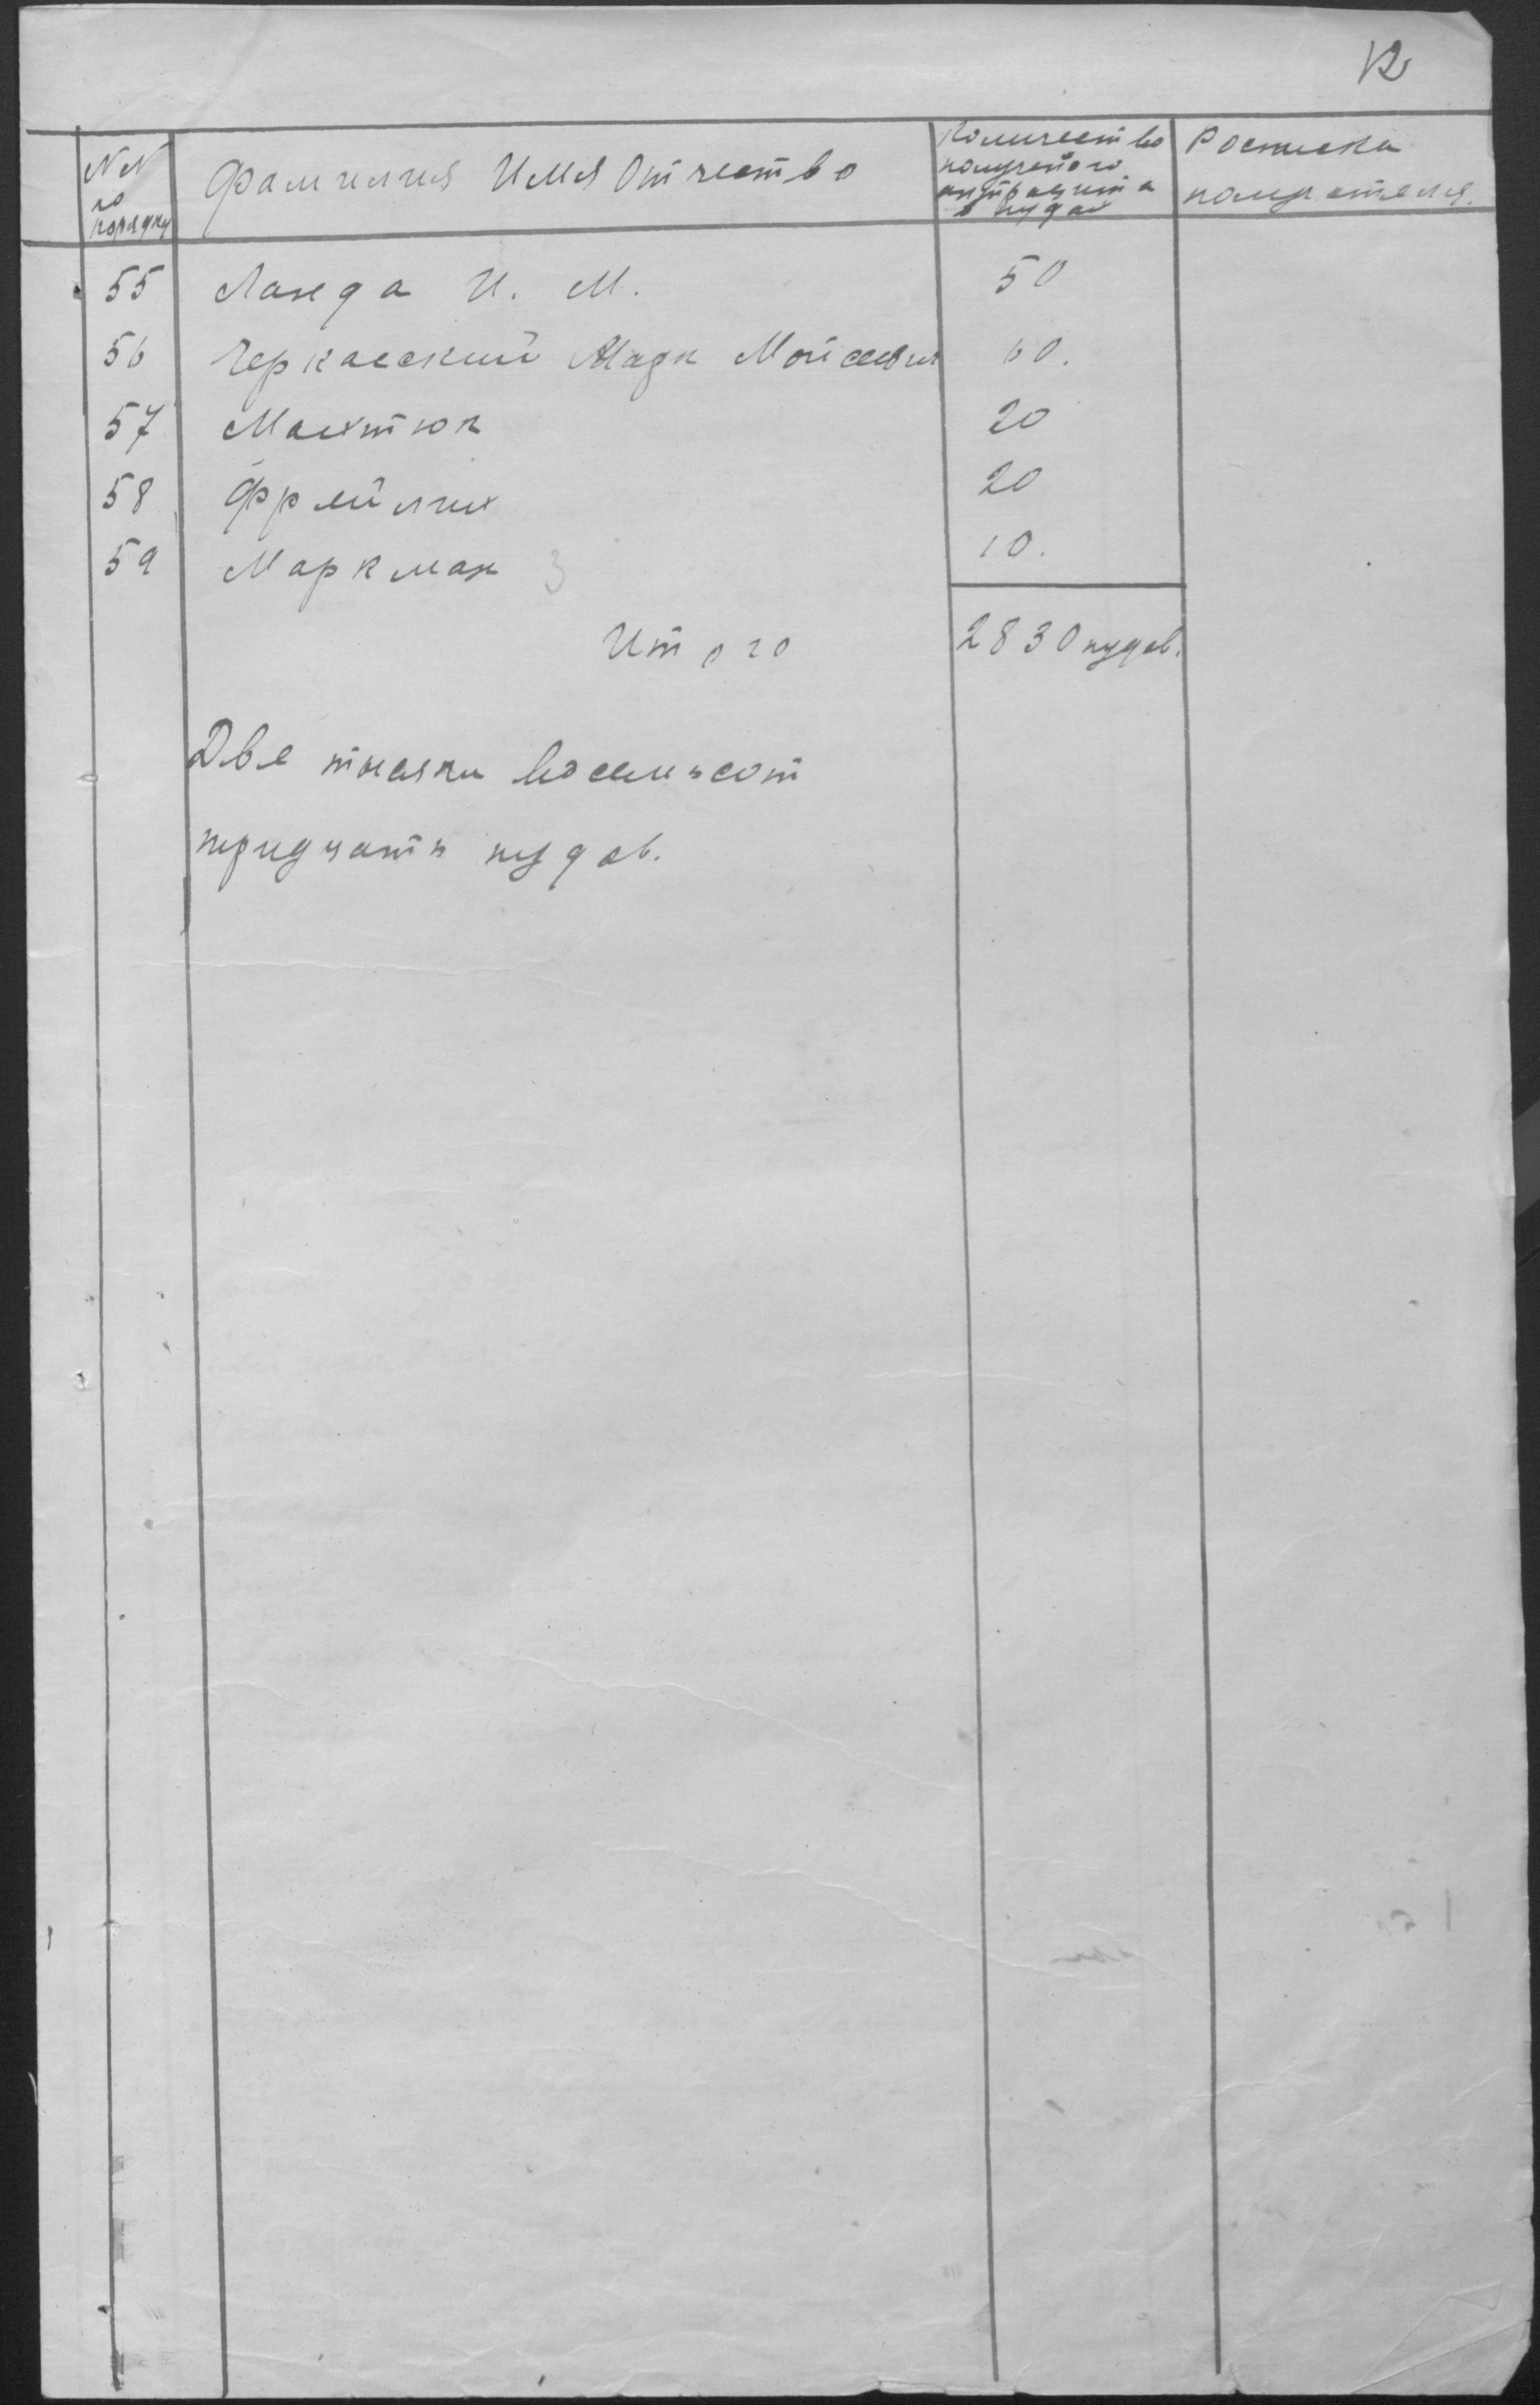 12
NN по порядку | Фамилия Имя Отчество | Количество полученого антрацита в пудах | Росписка получателя.
55 Ланда И. М. 50
56 Черкасский Марк Мойсеевич 60.
57 20
58 Фрейлих 20
59 Маркман 3 10.
Итого 2830 пудов.
Две тысячи восемьсот
тридцать пудов.